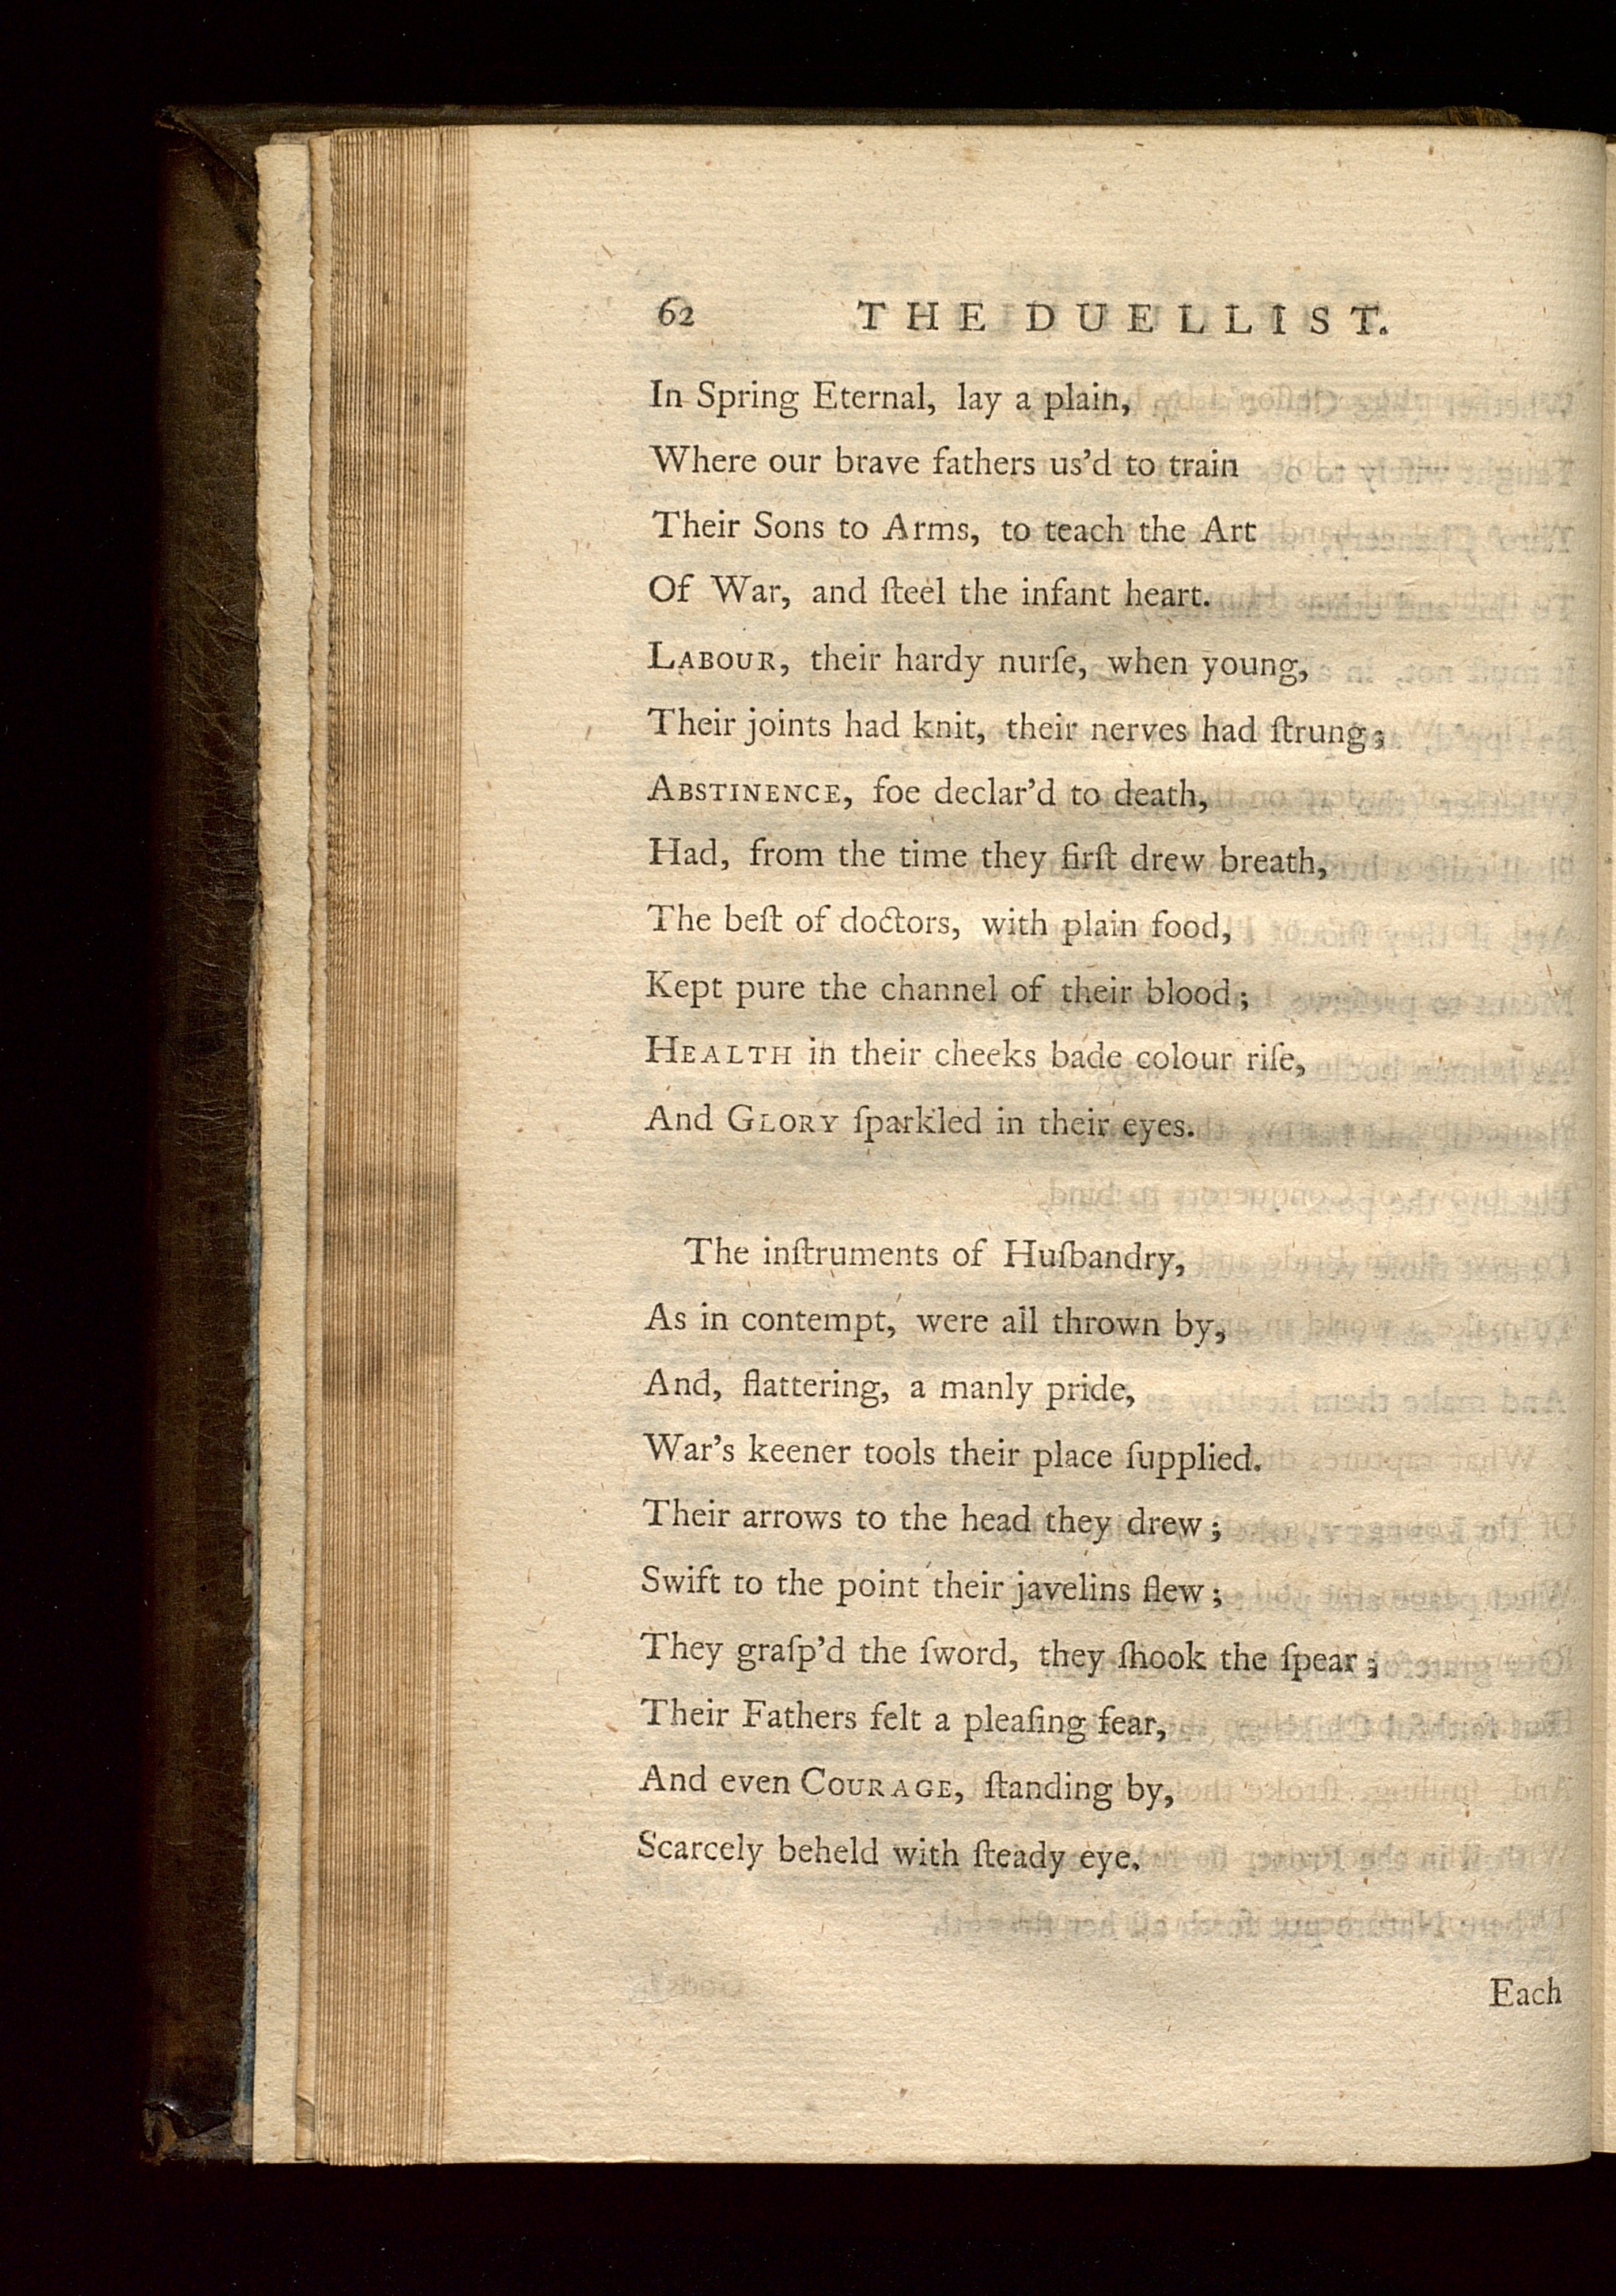 62 THE DUELLIST.
In Spring Eternal, lay a plain,
Where our brave fathers us'd to train
Their Sons to Arms, to teach the Art
Of War, and ſteel the infant heart.
LABOUR, their hardy nurſe, when young,
Their joints had knit, their nerves had ſtrung;
ABSTINENCE, foe declar'd to death,
Had, from the time they firſt drew breath,
The beſt of doctors, with plain food,
Kept pure the channel of their blood;
HEALTH in their cheeks bade colour riſe,
And GLORY ſparkled in their eyes.
The inſtruments of Huſbandry,
As in contempt, were all thrown by,
And, flattering, a manly pride,
War's keener tools their place ſupplied.
Their arrows to the head they drew;
Swift to the point their javelins flew;
They graſp'd the ſword, they ſhook the ſpear;
Their Fathers felt a pleaſing fear,
And even COURAGE, ſtanding by,
Scarcely beheld with ſteady eye.
Each